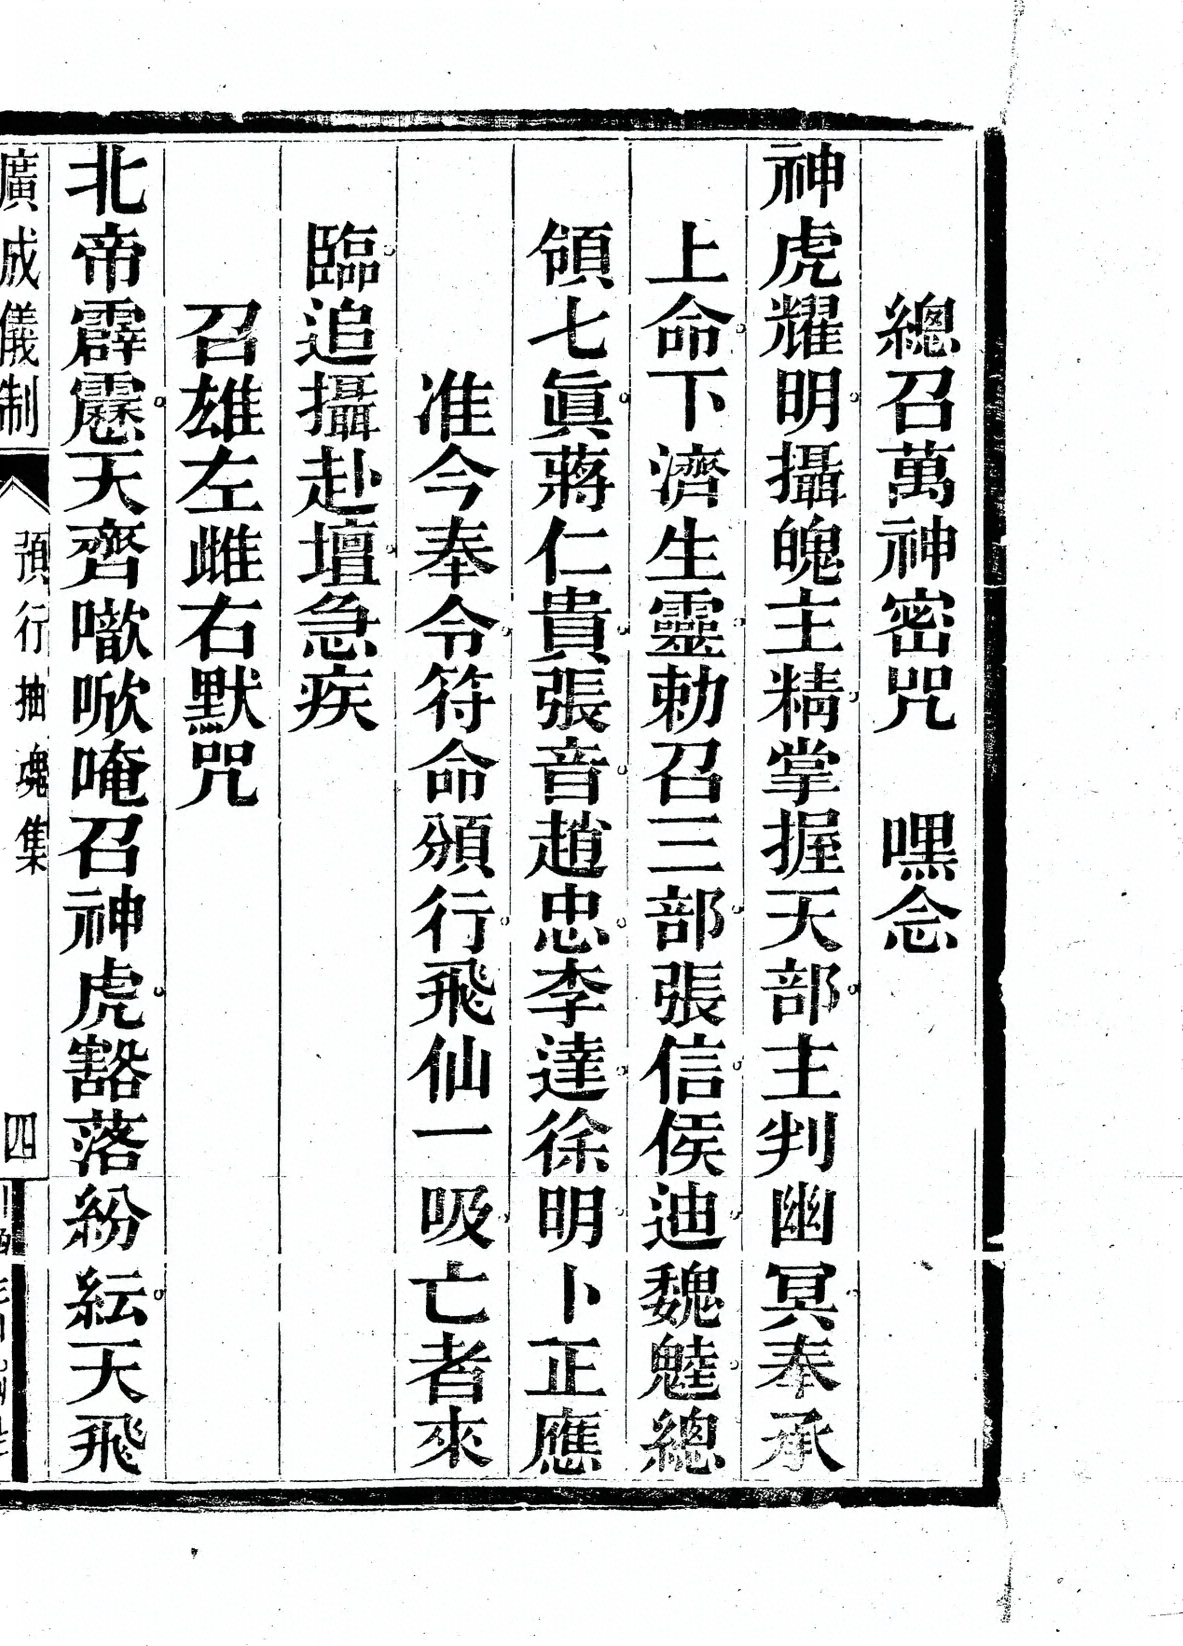 總召萬神密咒　嘿念
神虎耀明攝魄主精掌握天部主判幽冥奉承
上命下濟生靈勅召三部張信侯迪魏䰢總
領七眞蔣仁貴張音趙忠李達徐明卜正應
准今奉令符命頒行飛仙一吸亡者來
臨追攝赴壇急疾
召雄左雌右默咒
北帝霹靂天齊噷㗇唵召神虎豁落紛紜天飛
廣成儀制
預行抽魂集
四